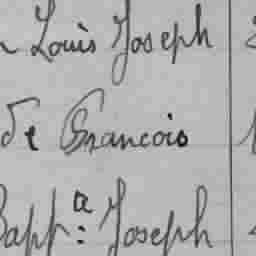 Louis Joseph
de Francois
Bapt.a Joseph